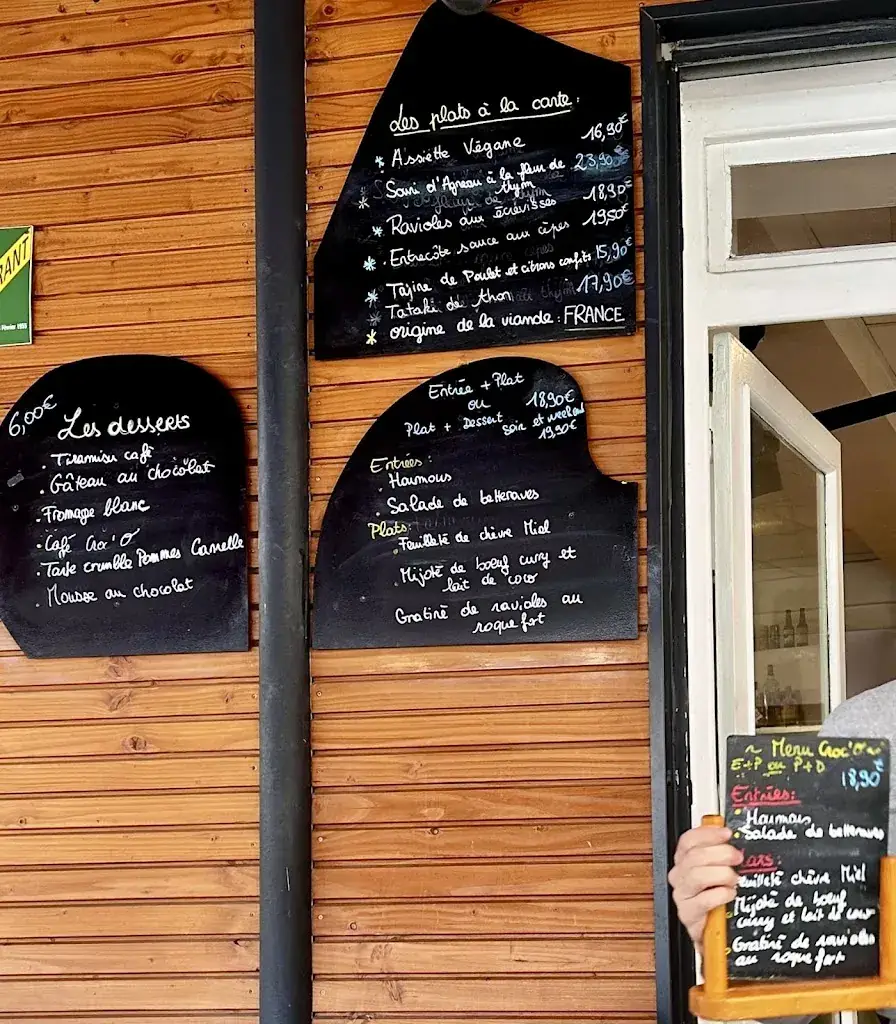 Les plats à la carte :
* Assiette Végane 16,90€
Souri d'Agneau à la fleur de 23,90€
* thym
* Ravioles aux écrevisses 18,90€
* . Entrecôte sauce aux cèpes 19,50€
* Tajine de Poulet et citrons confits 15,90€
Tataki de thon 17,90€
* origine de la viande : FRANCE
RANT
6,00€
Les desserts
. Tiramisu café
. Gâteau au chocolat
. Fromage blanc
. Café Croc'O
. Tarte crumble Pommes Cannelle
. Mousse au chocolat
Entrée + Plat
ou 18,90€
Plat + Dessert soir et weekend
19,90€
Entrées :
. Houmous
. Salade de betteraves
Plats:
. Feuilleté de chèvre Miel
. Mijoté de boeuf curry et
lait de coco
Gratiné de ravioles au
roquefort
~ Menu Croc'O ~
E+P ou P+D
18,90€
Entrées:
. Houmous
. Salade de betteraves
lats:
Feuilleté chèvre Miel
Mijoté de boeuf
curry et lait de coco
Gratiné de ravioles
au roquefort